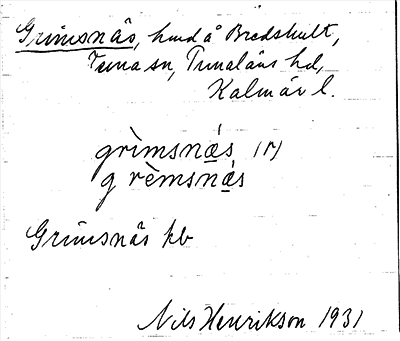 Grimsnäs, hmd å Bredshult,
Tuna sn, Tunaläns hd,
Kalmar l.
grìmsnä́s (r)
g rèmsnä́s
Grimsnäs kb
Nils Henrikson 1931